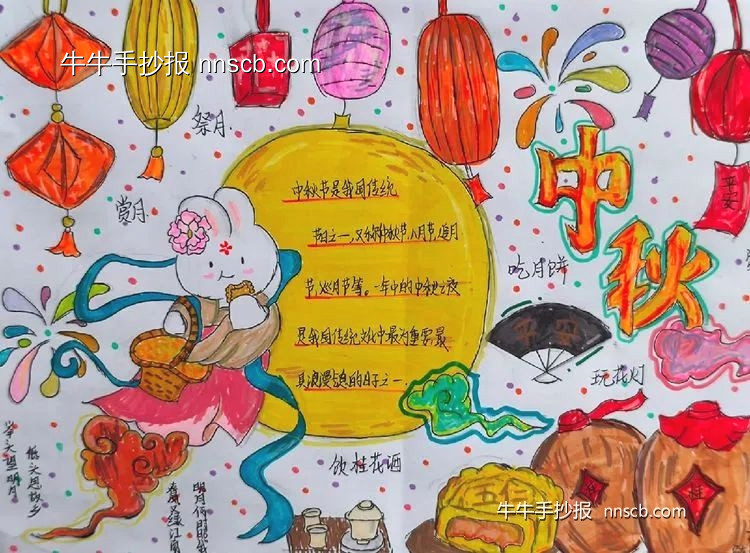 牛牛手抄报 nnscb.com
祭月
赏月
平安
中秋
中秋节是我国传统
节日之一,又称仲秋节、八月节、追月
节、巡月节等。一年中的中秋之夜
是我国传统文化中最为重要、最
具浪漫气息的日子之一。
吃月饼
平安
玩花灯
饮桂花酒
举头望明月
低头思故乡
春风又绿江南
明月何时照我
五仁
桂
牛牛手抄报 nnscb.com